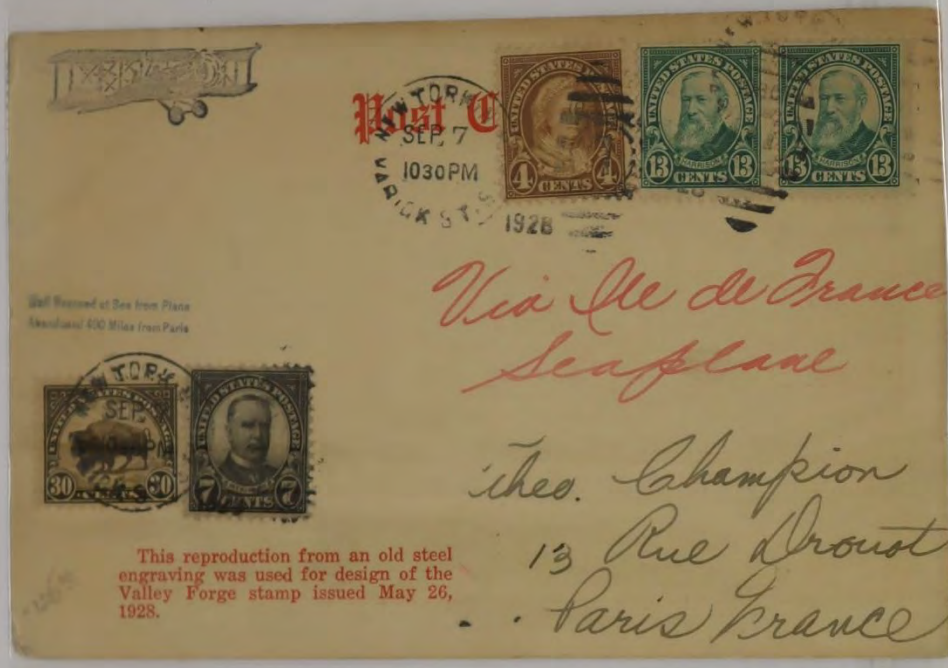 Post C
NEW YORK, N.Y.
SEP 7
10 30 PM
1928
VARICK ST. STA.
UNITED STATES POSTAGE
4 CENTS 4
UNITED STATES POSTAGE
HARRISON
13 CENTS 13
UNITED STATES POSTAGE
HARRISON
13 CENTS 13
Via Ile de France
Seaplane
Mail Rescued at Sea from Plane
Abandoned 400 Miles from Paris
NEW YORK
SEP
UNITED STATES POSTAGE
30 CENTS 30
UNITED STATES POSTAGE
7 CENTS 7
Theo. Champion
13 Rue Drouot
Paris France
This reproduction from an old steel
engraving was used for design of the
Valley Forge stamp issued May 26,
1928.